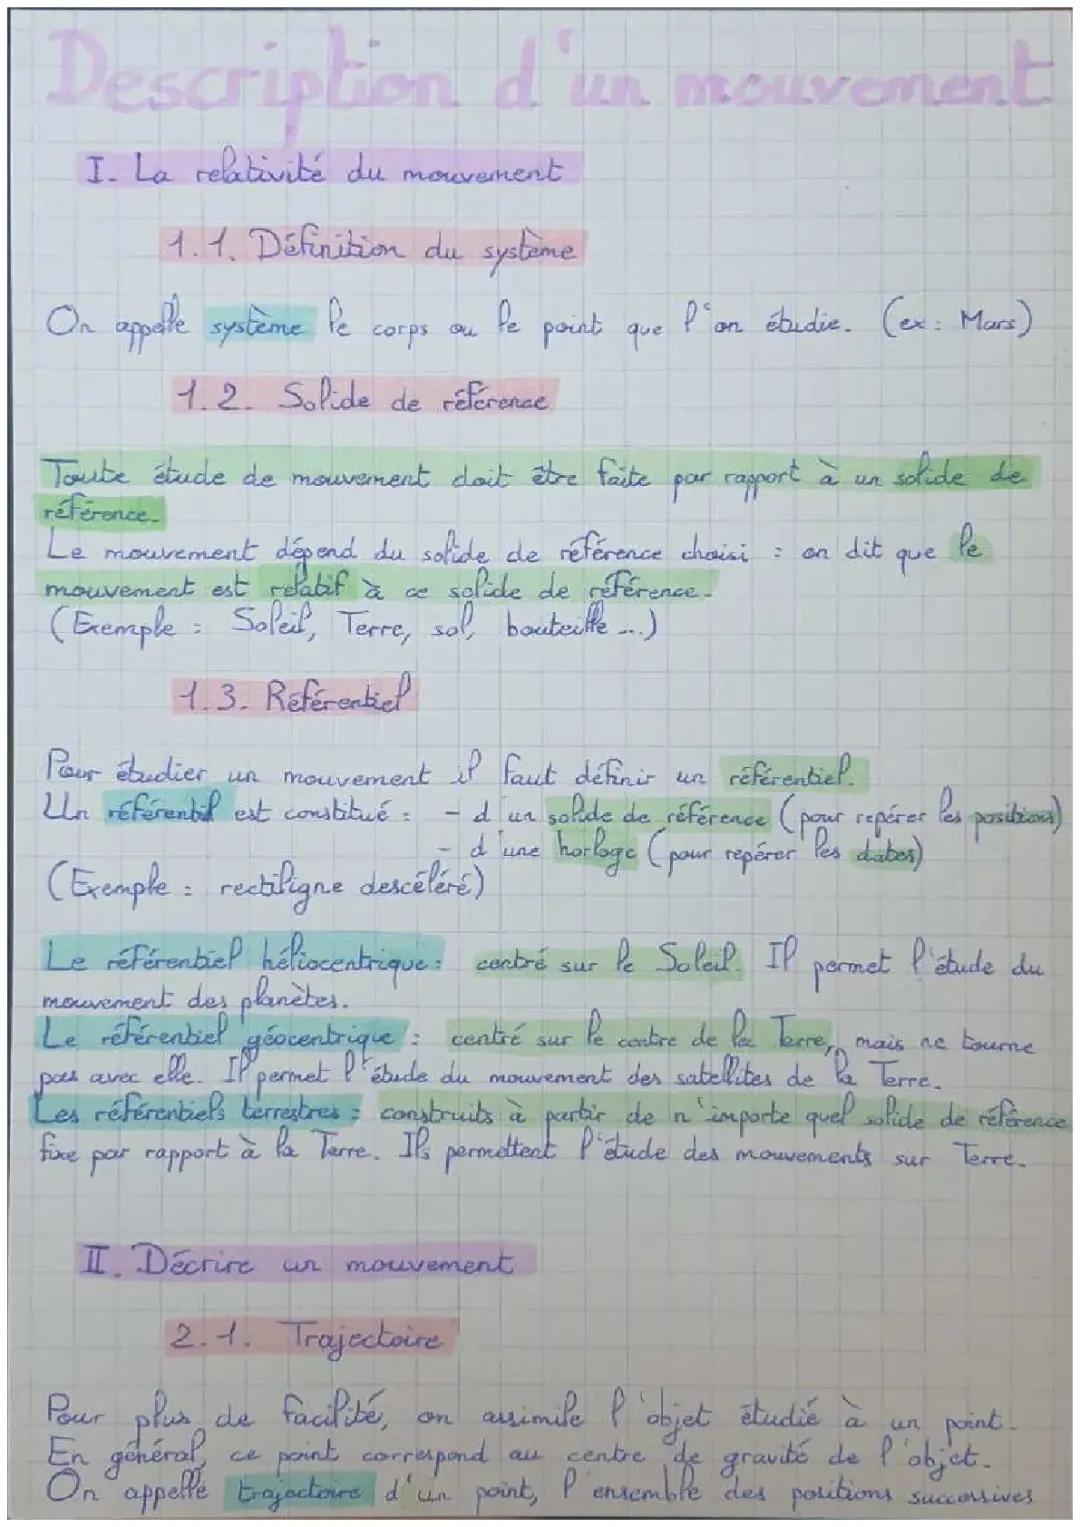 Description d'un mouvement
I. La relativité du mouvement
1.1. Définition du système
On appelle système le corps ou le point que l'on étudie. (ex: Mars)
1.2. Solide de référence
Toute étude de mouvement doit être faite par rapport à un solide de
référence.
Le mouvement dépend du solide de référence choisi : on dit que le
mouvement est relatif à ce solide de référence.
(Exemple : Soleil, Terre, sol, bouteille ...)
1.3. Référentiel
Pour étudier un mouvement il faut définir un référentiel.
Un référentil est constitué : - d'un solide de référence (pour repérer les positions)
- d'une horloge (pour repérer les dates)
(Exemple : rectiligne descéléré)
Le référentiel héliocentrique : centré sur le Soleil. Il permet l'étude du
mouvement des planètes.
Le référentiel géocentrique : centré sur le centre de la Terre, mais ne tourne
pas avec elle. Il permet l'étude du mouvement des satellites de la Terre.
Les référentiels terrestres : construits à partir de n'importe quel solide de référence
fixe par rapport à la Terre. Ils permettent l'étude des mouvements sur Terre.
II. Décrire un mouvement
2.1. Trajectoire
Pour plus de facilité, on assimile l'objet étudié à un point.
En général, ce point correspond au centre de gravité de l'objet.
On appelle trajectoire d'un point, l'ensemble des positions successives